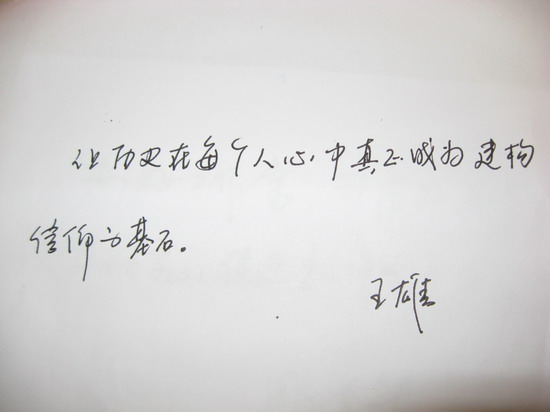 让历史在每个人心中真正成为建构
信仰的基石。
王雄